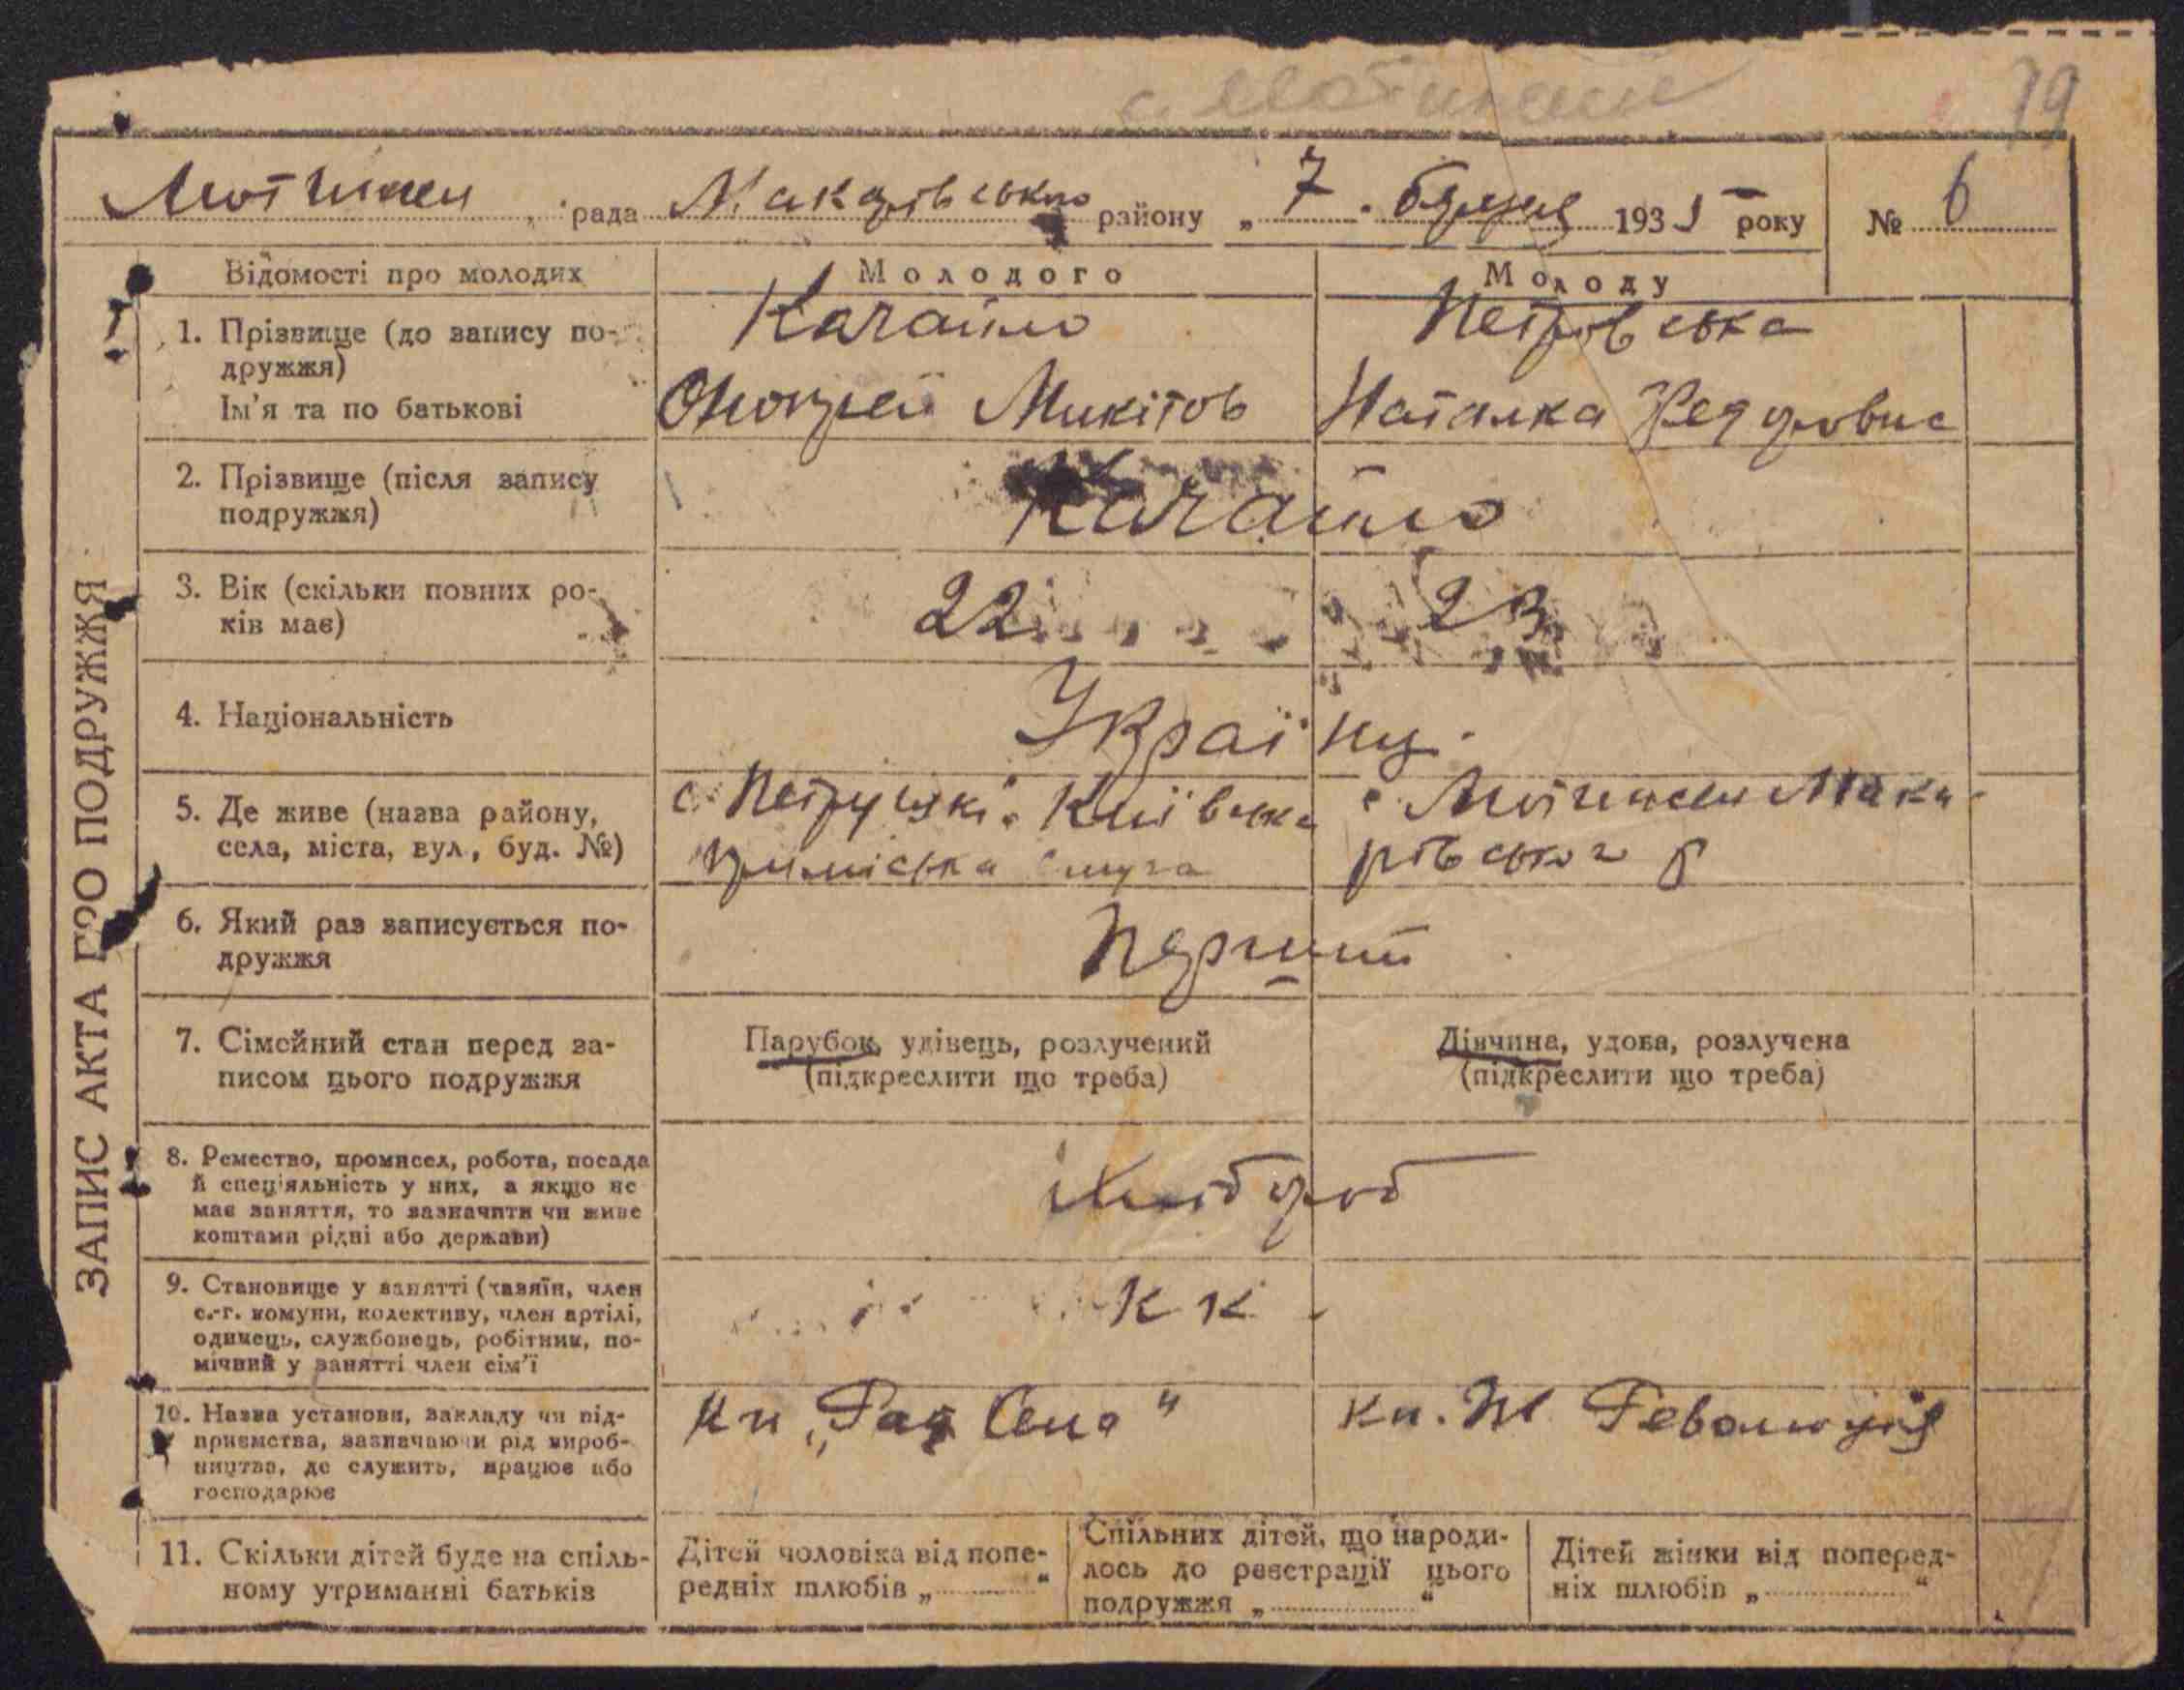 с. Мотижин 19
Мотижин рада Макарівсько району „ 7 . 1935 року № 6
ЗАПИС АКТА ПРО ПОДРУЖЖЯ
Відомості про молодих Молодого Молоду
1. Прізвище (до запису по-
дружжя)
Качайло Петровська
Ім'я та по батькові Онопрей Микітов Наталка Федоровна
2. Прізвище (після запису
подружжя)
Качайло
3. Вік (скільки повних ро-
ків має)
22 23
4. Національність Україну.
5. Де живе (назва району,
села, міста, вул., буд. №)
с. Петрушкі. Київська с Мотижин Мака-
приміська смуга рівськог р
6. Який раз записується по-
дружжя
Перший
7. Сімейний стан перед за-
писом цього подружжя
Парубок, удівець, розлучений
(підкреслити що треба)
Дівчина, удова, розлучена
(підкреслити що треба)
8. Ремество, промисел, робота, посада
й спеціяльність у них, а якщо не
має заняття, то зазначити чи живе
коштами рідні або держави)
Хлібороб
9. Становище у занятті (хазяїн, член
с.-г. комуни, колективу, член артілі,
одинець, службовець, робітник, по-
мічний у занятті член сім'ї
К К
10. Назва установи, закладу чи під-
приємства, зазначаючи рід вироб-
ництва, де служить, працює або
господарює
Кп „Рад Село" кп. Революція
11. Скільки дітей буде на спіль-
ному утриманні батьків
Дітей чоловіка від попе-
редніх шлюбів „ “
Спільних дітей, що народи-
лось до реєстрації цього
подружжя „ “
Дітей жінки від поперед-
ніх шлюбів „ “